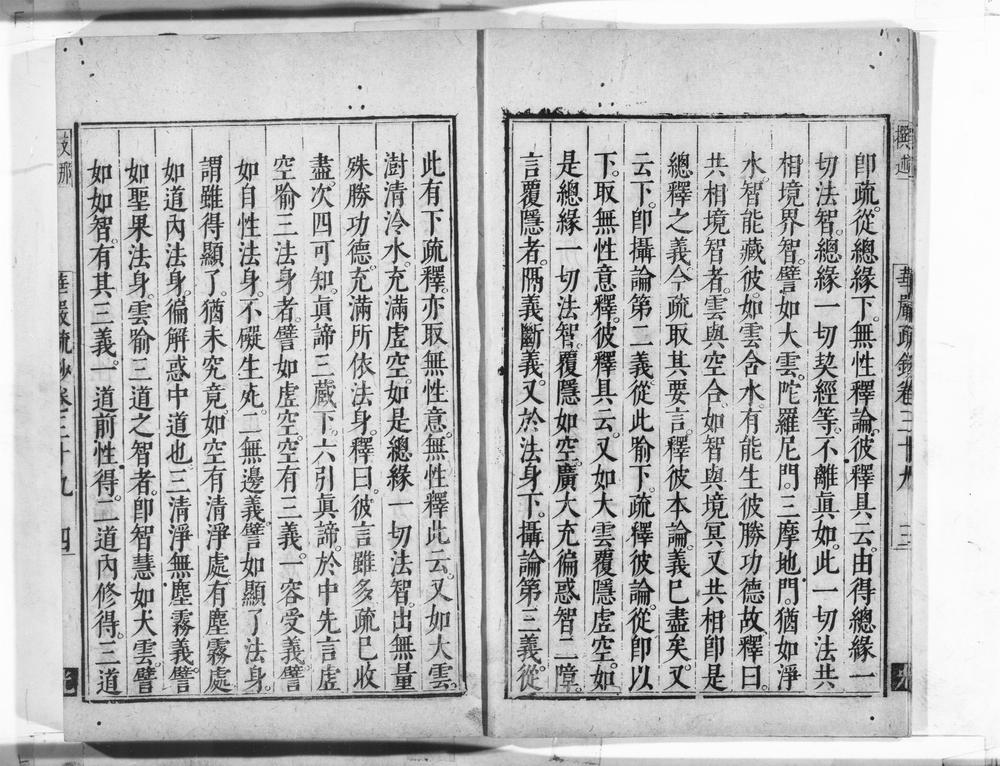 撰述
華嚴疏鈔卷三十九
三
即疏。從總緣下。無性釋論。彼釋具云。由得總緣一
切法智。總緣一切契經等。不離真如。此一切法共
相境界智。譬如大雲。陀羅尼門。三摩地門。猶如淨
水。智能藏彼。如雲含水。有能生彼勝功德故。釋曰。
共相境智者。雲與空合。如智與境冥。又共相即是
總釋之義。今疏取其要言。釋彼本論。義已盡矣。又
云下。即攝論第二義。從此喻下疏釋彼論。從即以
下。取無性意釋。彼釋具云。又如大雲覆隱虛空。如
是總緣一切法智。覆隱如空。廣大充徧惑智二障。
言覆隱者。隔義斷義。又於法身下。攝論第三義。從
此有下疏釋。亦取無性意。無性釋此云。又如大雲。
澍清泠水。充滿虛空。如是總緣一切法智。出無量
殊勝功德。充滿所依法身。釋曰。彼言雖多。疏已收
盡。次四可知。真諦三藏下。六引真諦。於中先言虛
空喻三法身者。譬如虛空。空有三義。一容受義。譬
如自性法身。不礙生死。二無邊義。譬如顯了法身。
謂雖得顯了。猶未究竟。如空有清淨處。有塵霧處
如道內法身。徧解惑中道也。三清淨無塵霧義。譬
如聖果法身。雲喻三道之智者。即智慧如大雲。譬
如如智。有其三義。一道前性得。二道內修得。三道
支那
華嚴疏鈔卷三十九
四